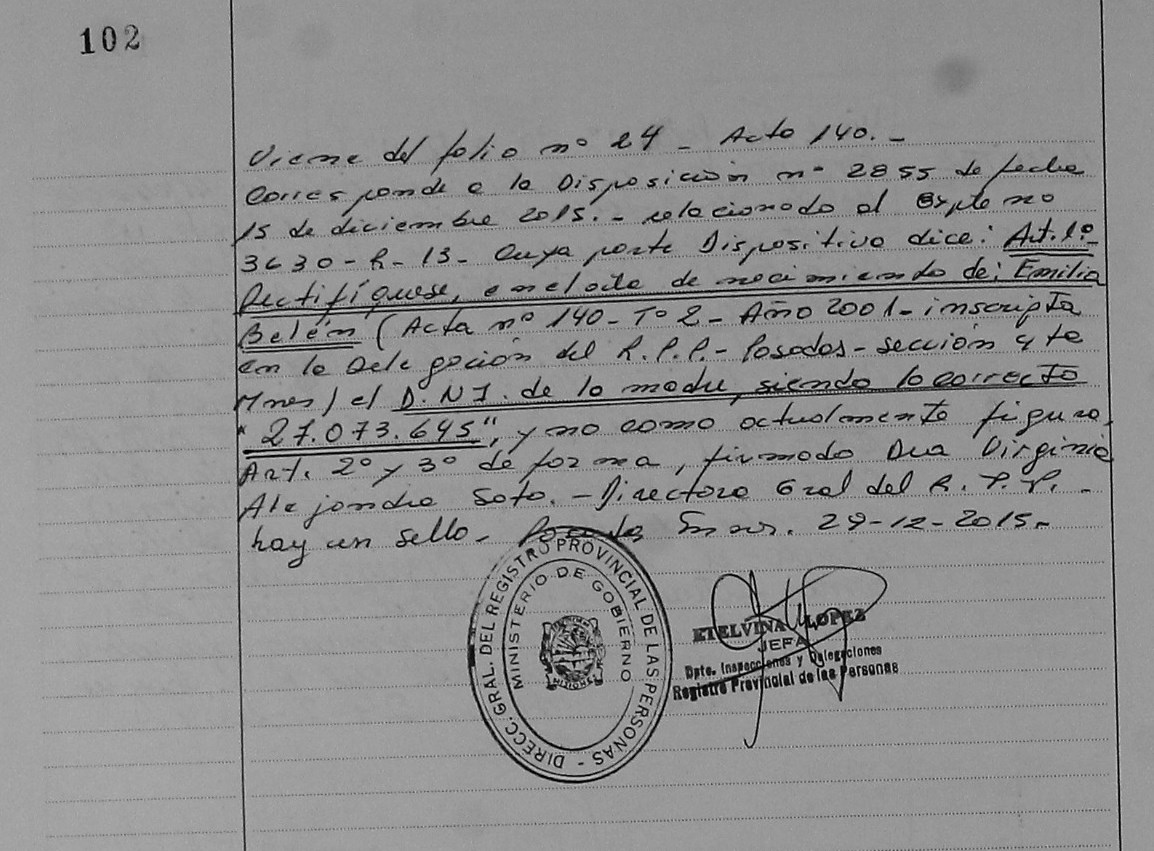 102
Viene del folio nº 24 - Acta 140.-
Corresponde a la Disposición nº 2855 de fecha
15 de diciembre 2015.- relacionado al Expte nro
3630-R-13- Cuya parte Dispositiva dice: Art.1º-
Rectifíquese, en el acta de nacimiento de: Emilia
Belén (Acta nº 140-Tº 2- Año 2001- inscripta
en la Delegación del R.P.P.- Posadas- sección 4 ta
Mnes) el D.N.I. de la madre, siendo lo correcto
"27.073.645", y no como actualmente figura.
Art. 2º y 3º de forma, firmado Dra Virginia
Alejandra Soto.- Directora Gral del R.P.P.-
hay un sello- Posadas Mnes. 29-12-2015-
DIRECC. GRAL. DEL REGISTRO PROVINCIAL DE LAS PERSONAS -
MINISTERIO DE GOBIERNO
MISIONES
ETELVINA LOPEZ
JEFA
Dpto. Inspecciones y Delegaciones
Registro Provincial de las Personas